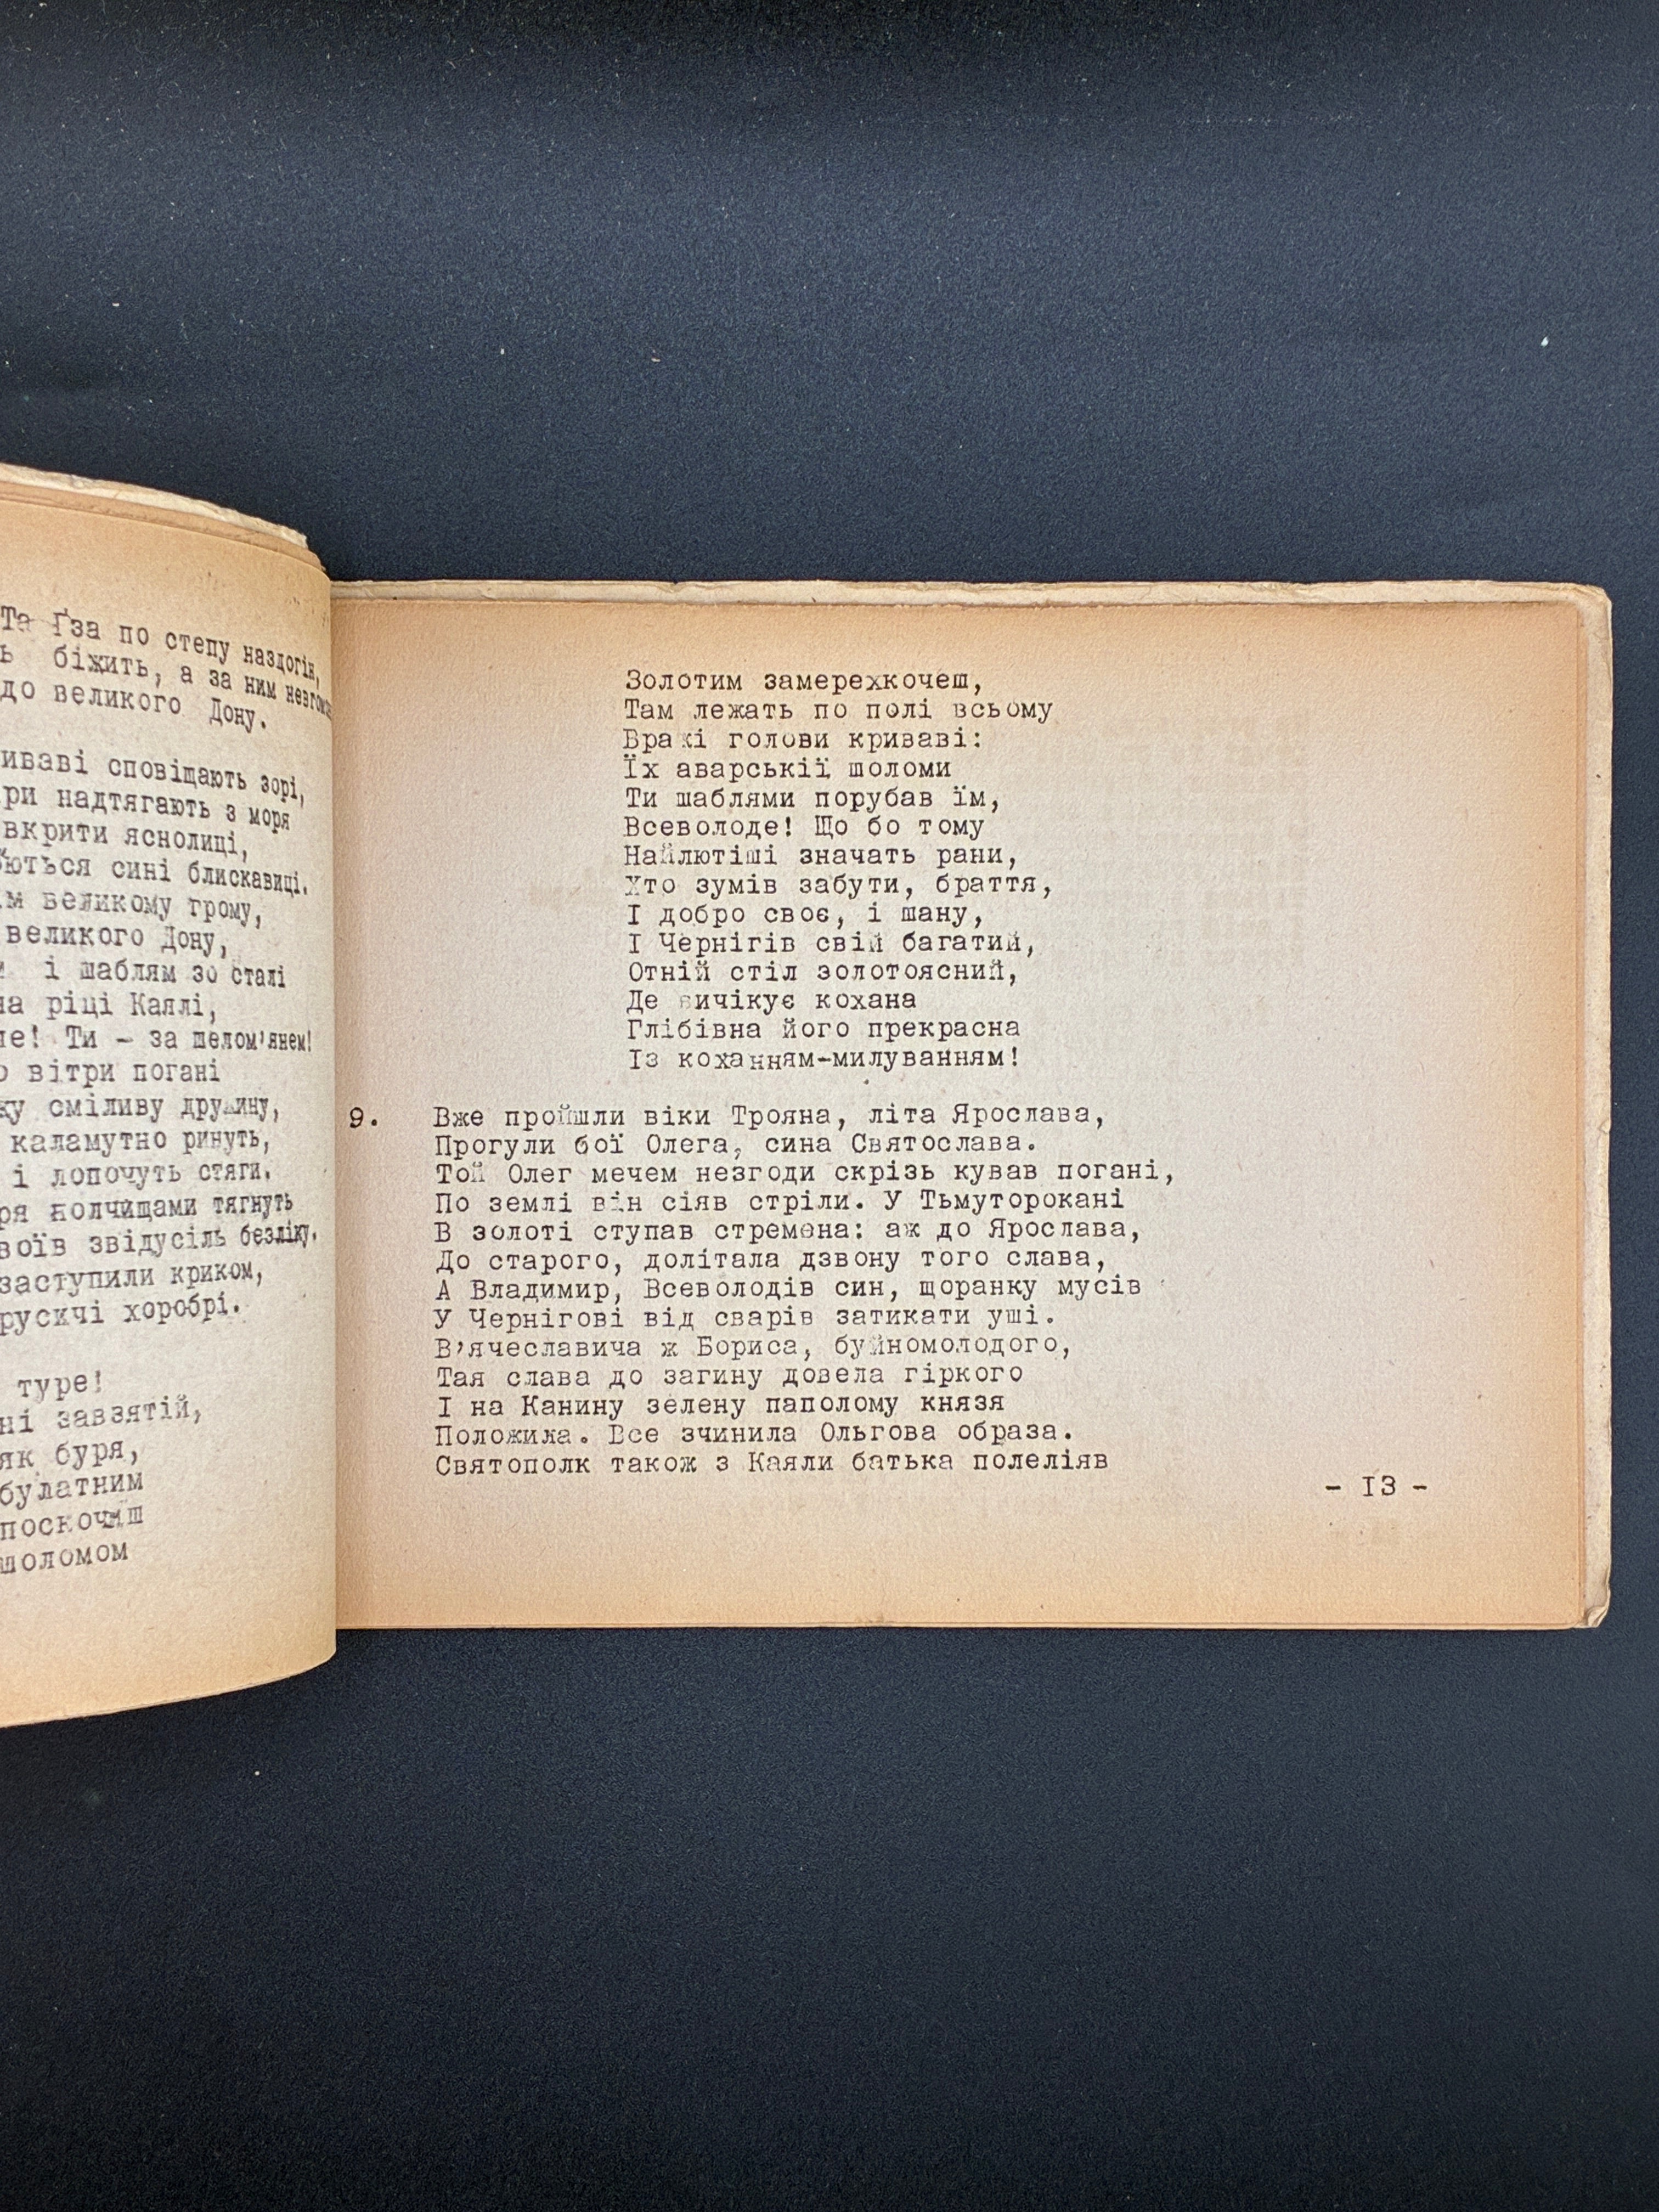 Та Ґза по степу наздогін,
ь біжить, а за ним
до великого Дону.
иваві сповіщають зорі,
ри надтягають з моря
вкрити яснолиці,
ються сині блискавиці.
м великому грому,
великого Дону,
і шаблям зо сталі
на ріці Каялі,
ле! Ти - за шелом'янем!
о вітри погані
ку сміливу дружину,
каламутно ринуть,
і лопочуть стяги.
ря полчищами тягнуть
воїв звідусіль безліку.
заступили криком,
русичі хоробрі.
туре!
ні завзятій,
як буря,
булатним
поскочиш
шоломом
Золотим замерехкочеш,
Там лежать по полі всьому
Вражі голови криваві:
Їх аварськії шоломи
Ти шаблями порубав їм,
Всеволоде! Що бо тому
Найлютіші значать рани,
Хто зумів забути, браття,
І добро своє, і шану,
І Чернігів свій багатий,
Отній стіл золотоясний,
Де вичікує кохана
Глібівна його прекрасна
Із коханням-милуванням!
9. Вже пройшли віки Трояна, літа Ярослава,
Прогули бої Олега, сина Святослава.
Той Олег мечем незгоди скрізь кував погані,
По землі він сіяв стріли. У Тьмуторокані
В золоті ступав стремена: аж до Ярослава,
До старого, долітала дзвону того слава,
А Владимир, Всеволодів син, щоранку мусів
У Чернігові від сварів затикати уші.
В'ячеславича ж Бориса, буйномолодого,
Тая слава до загину довела гіркого
І на Канину зелену паполому князя
Положила. Все зчинила Ольгова образа.
Святополк також з Каяли батька полеліяв
- 13 -